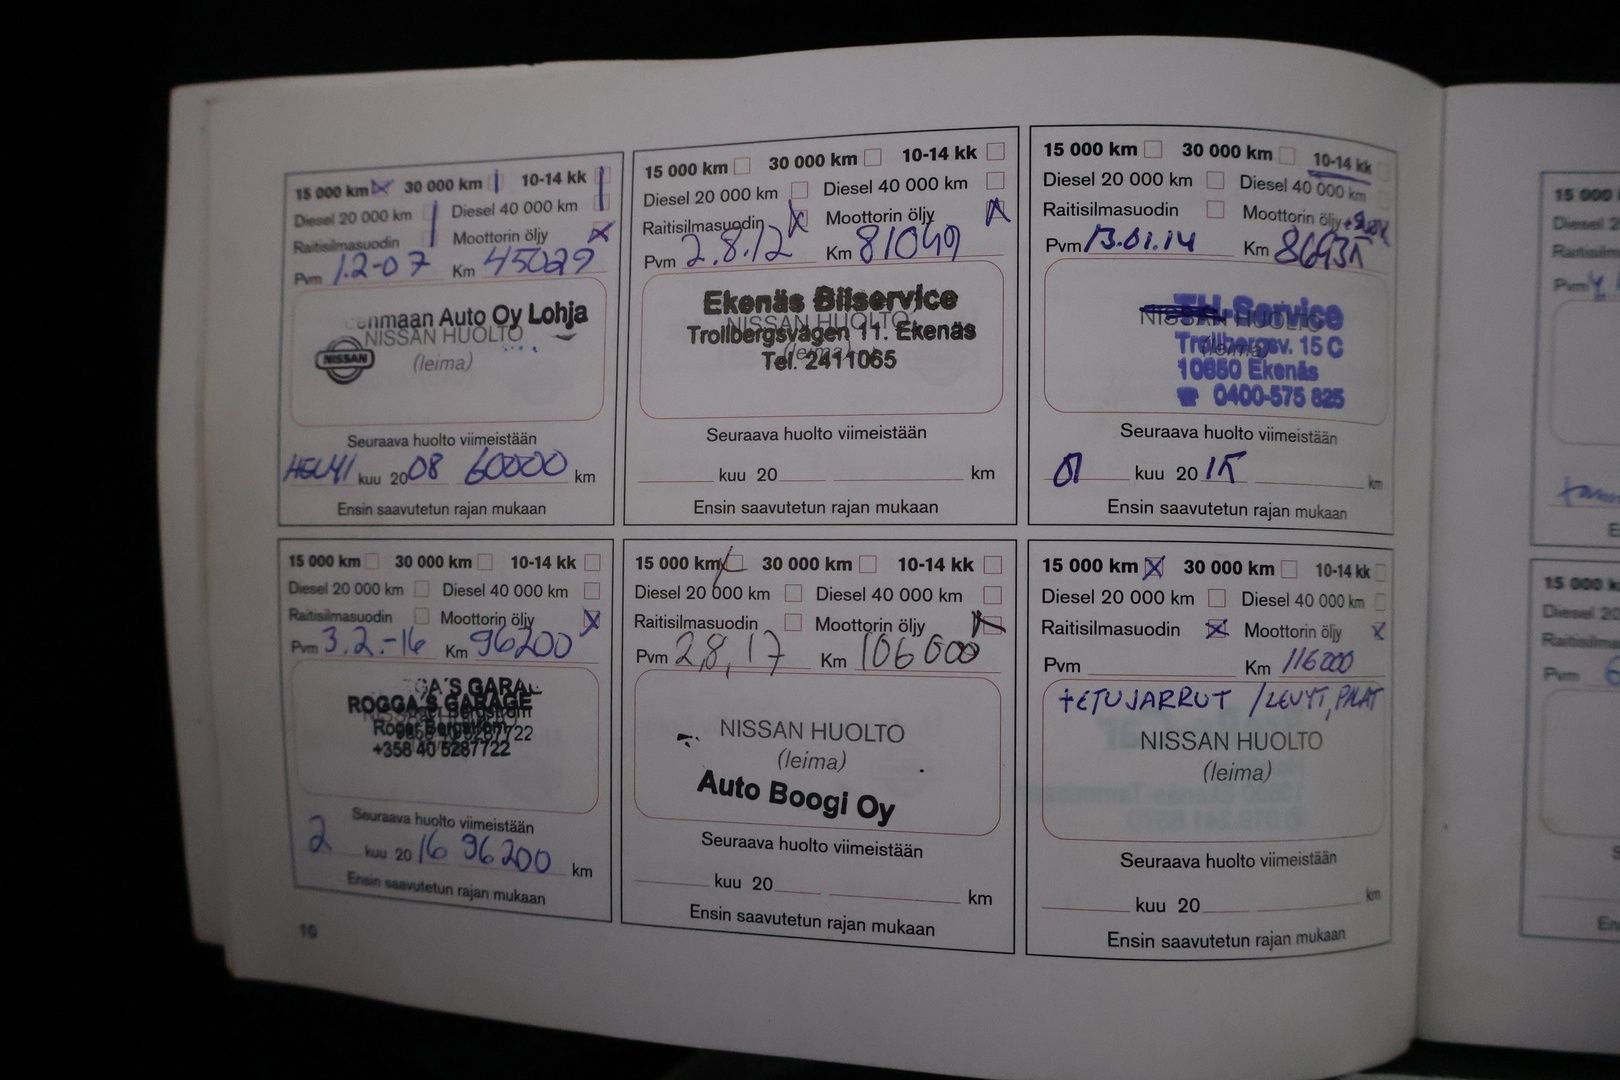 15 000 km 30 000 km 10-14 kk
Diesel 20 000 km Diesel 40 000 km
Raitisilmasuodin Moottorin öljy
Pvm 1.2-07 Km 45029
enmaan Auto Oy Lohja
NISSAN HUOLTO
NISSAN (leima)
Seuraava huolto viimeistään
kuu 2008 60000 km
Ensin saavutetun rajan mukaan
15 000 km 30 000 km 10-14 kk
Diesel 20 000 km Diesel 40 000 km
Raitisilmasuodin Moottorin öljy
Pvm 2.8.12 Km 81049
Ekenäs Bilservice
NISSAN HUOLTO
Trollbergsvägen 11. Ekenäs
(leima)
Tel. 2411065
Seuraava huolto viimeistään
kuu 20 km
Ensin saavutetun rajan mukaan
15 000 km 30 000 km 10-14 kk
Diesel 20 000 km Diesel 40 000 km
Raitisilmasuodin Moottorin öljy
Pvm 13.01.14 Km 86935
TH-Service
NISSAN HUOLTO
Trollbergsv. 15 C
(leima)
10650 Ekenäs
☎ 0400-575 825
Seuraava huolto viimeistään
01 kuu 2015 km
Ensin saavutetun rajan mukaan
15 000 km 30 000 km 10-14 kk
Diesel 20 000 km Diesel 40 000 km
Raitisilmasuodin Moottorin öljy
Pvm 3.2.-16 Km 96200
ROGGA'S GARAGE
Roger Bergström
+358 40 5287722
Seuraava huolto viimeistään
2 kuu 2016 96200 km
Ensin saavutetun rajan mukaan
15 000 km 30 000 km 10-14 kk
Diesel 20 000 km Diesel 40 000 km
Raitisilmasuodin Moottorin öljy
Pvm 2,8,17 Km 106000
NISSAN HUOLTO
(leima)
Auto Boogi Oy
Seuraava huolto viimeistään
kuu 20 km
Ensin saavutetun rajan mukaan
15 000 km 30 000 km 10-14 kk
Diesel 20 000 km Diesel 40 000 km
Raitisilmasuodin Moottorin öljy
Pvm Km 116000
+ETUJARRUT /LEVYT, PALAT
NISSAN HUOLTO
(leima)
Seuraava huolto viimeistään
kuu 20 km
Ensin saavutetun rajan mukaan
10
15 000
Diesel 2
Raitisilma
Pvm
15 000 k
Diesel 20
Raitisilma
Pvm 6